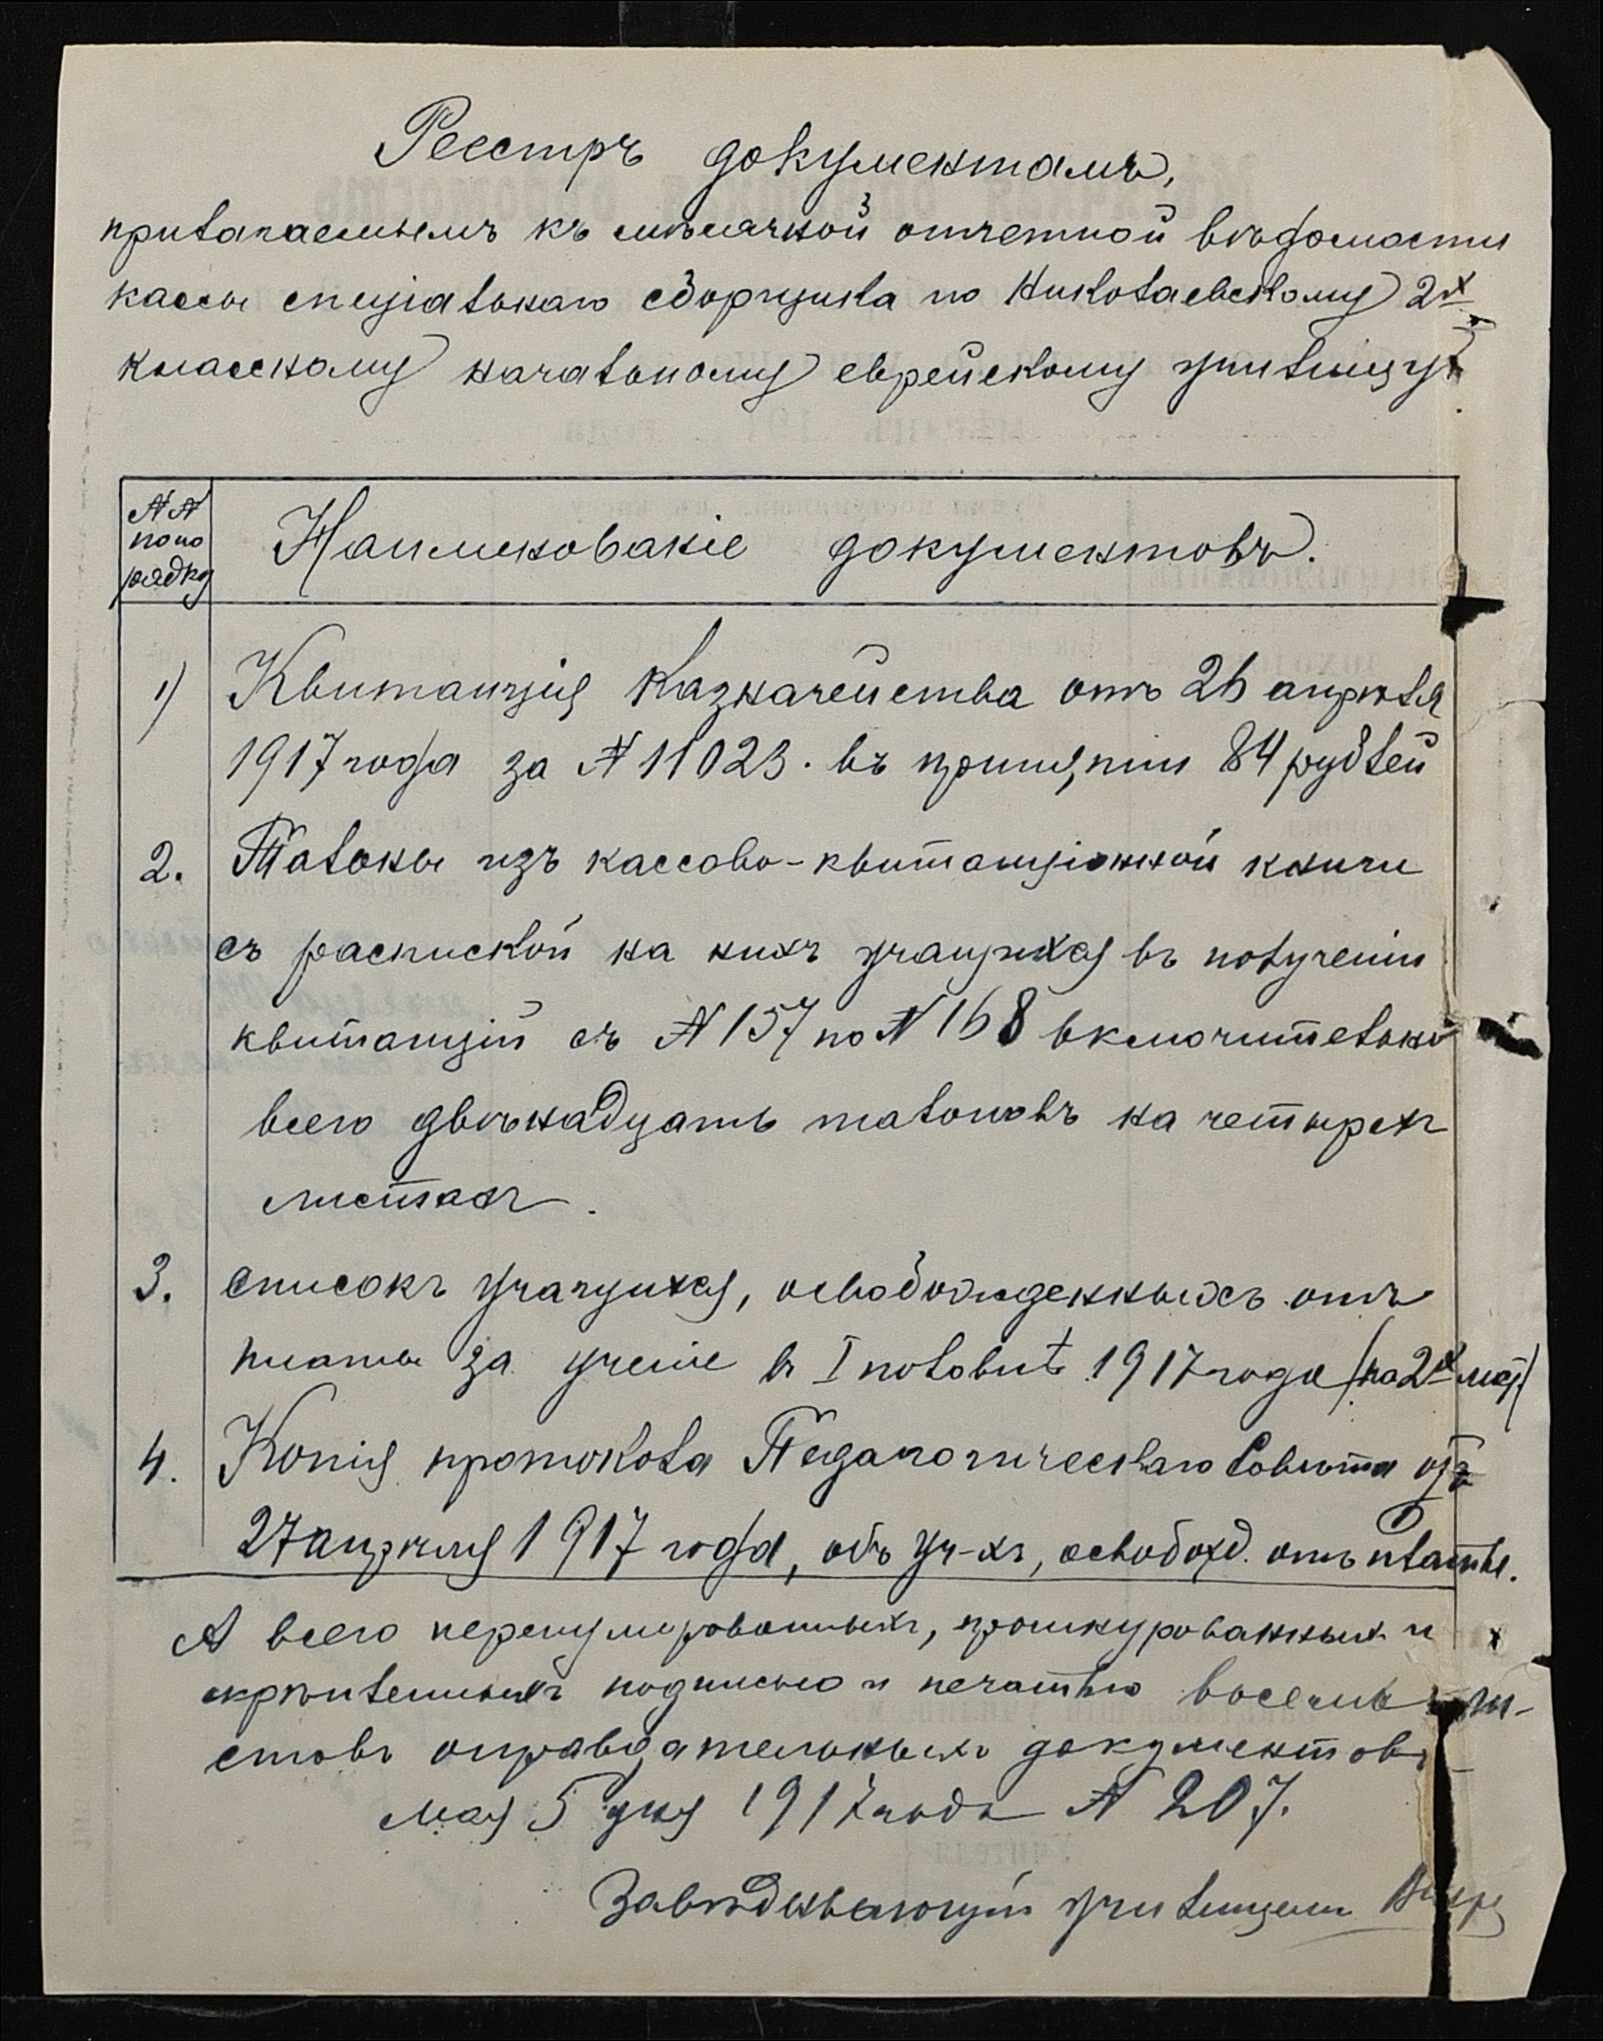 Реестръ документамъ,
прилагаемымъ къ мѣсячной отчетной вѣдомости
кассы спеціальнаго сборщика по Николаевскому 2х
классному начальному еврейскому училищу
№№ по по рядку
Наименованіе документовъ.
1) Квитанція Казначейства отъ 26 апрѣля
1917 года за № 11023. въ принятіи 84 рублей
2. Талоны изъ кассово-квитанціонной книги
съ распиской на нихъ учащихся въ полученіи
квитанцій съ № 157 по № 168 включительно
всего двѣнадцать талоновъ на четырехъ
листахъ.
3. Списокъ учащихся, освобожденныхъ отъ
платы за ученіе въ I половинѣ 1917 года (на 2х лист)
4. Копія протокола Педагогическаго Совѣта отъ
27 апрѣля 1917 года, объ уч-хъ, освобожд. отъ платы.
А всего перенумерованныхъ, прошнурованныхъ и
скрѣпленныхъ подписью и печатью восемь ли-
стовъ оправдательныхъ документовъ
мая 5 дня 1917 года № 207.
Завѣдывающій училищемъ